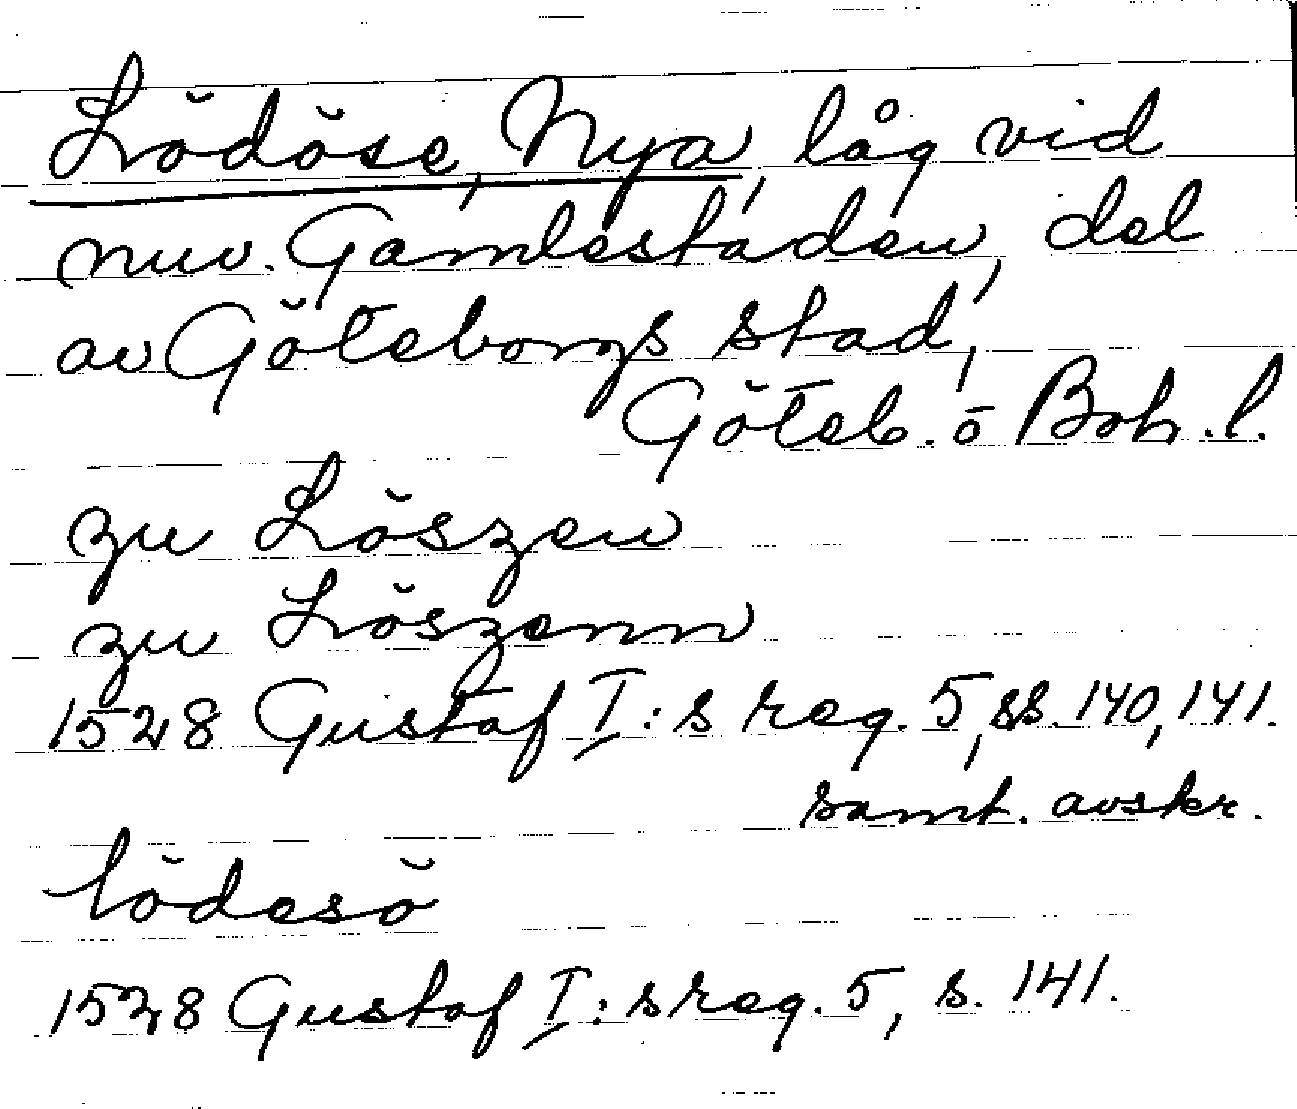 Lödöse, Nya, låg vid
nuv. Gamlestaden, del
av Göteborgs stad,
Göteb. o Boh. l.
zu Löszen
zu Löszenn
1528 Gustaf I:s reg. 5, ss. 140, 141.
samt. avskr.
lödesö
1528 Gustaf I:s reg. 5, s. 141.